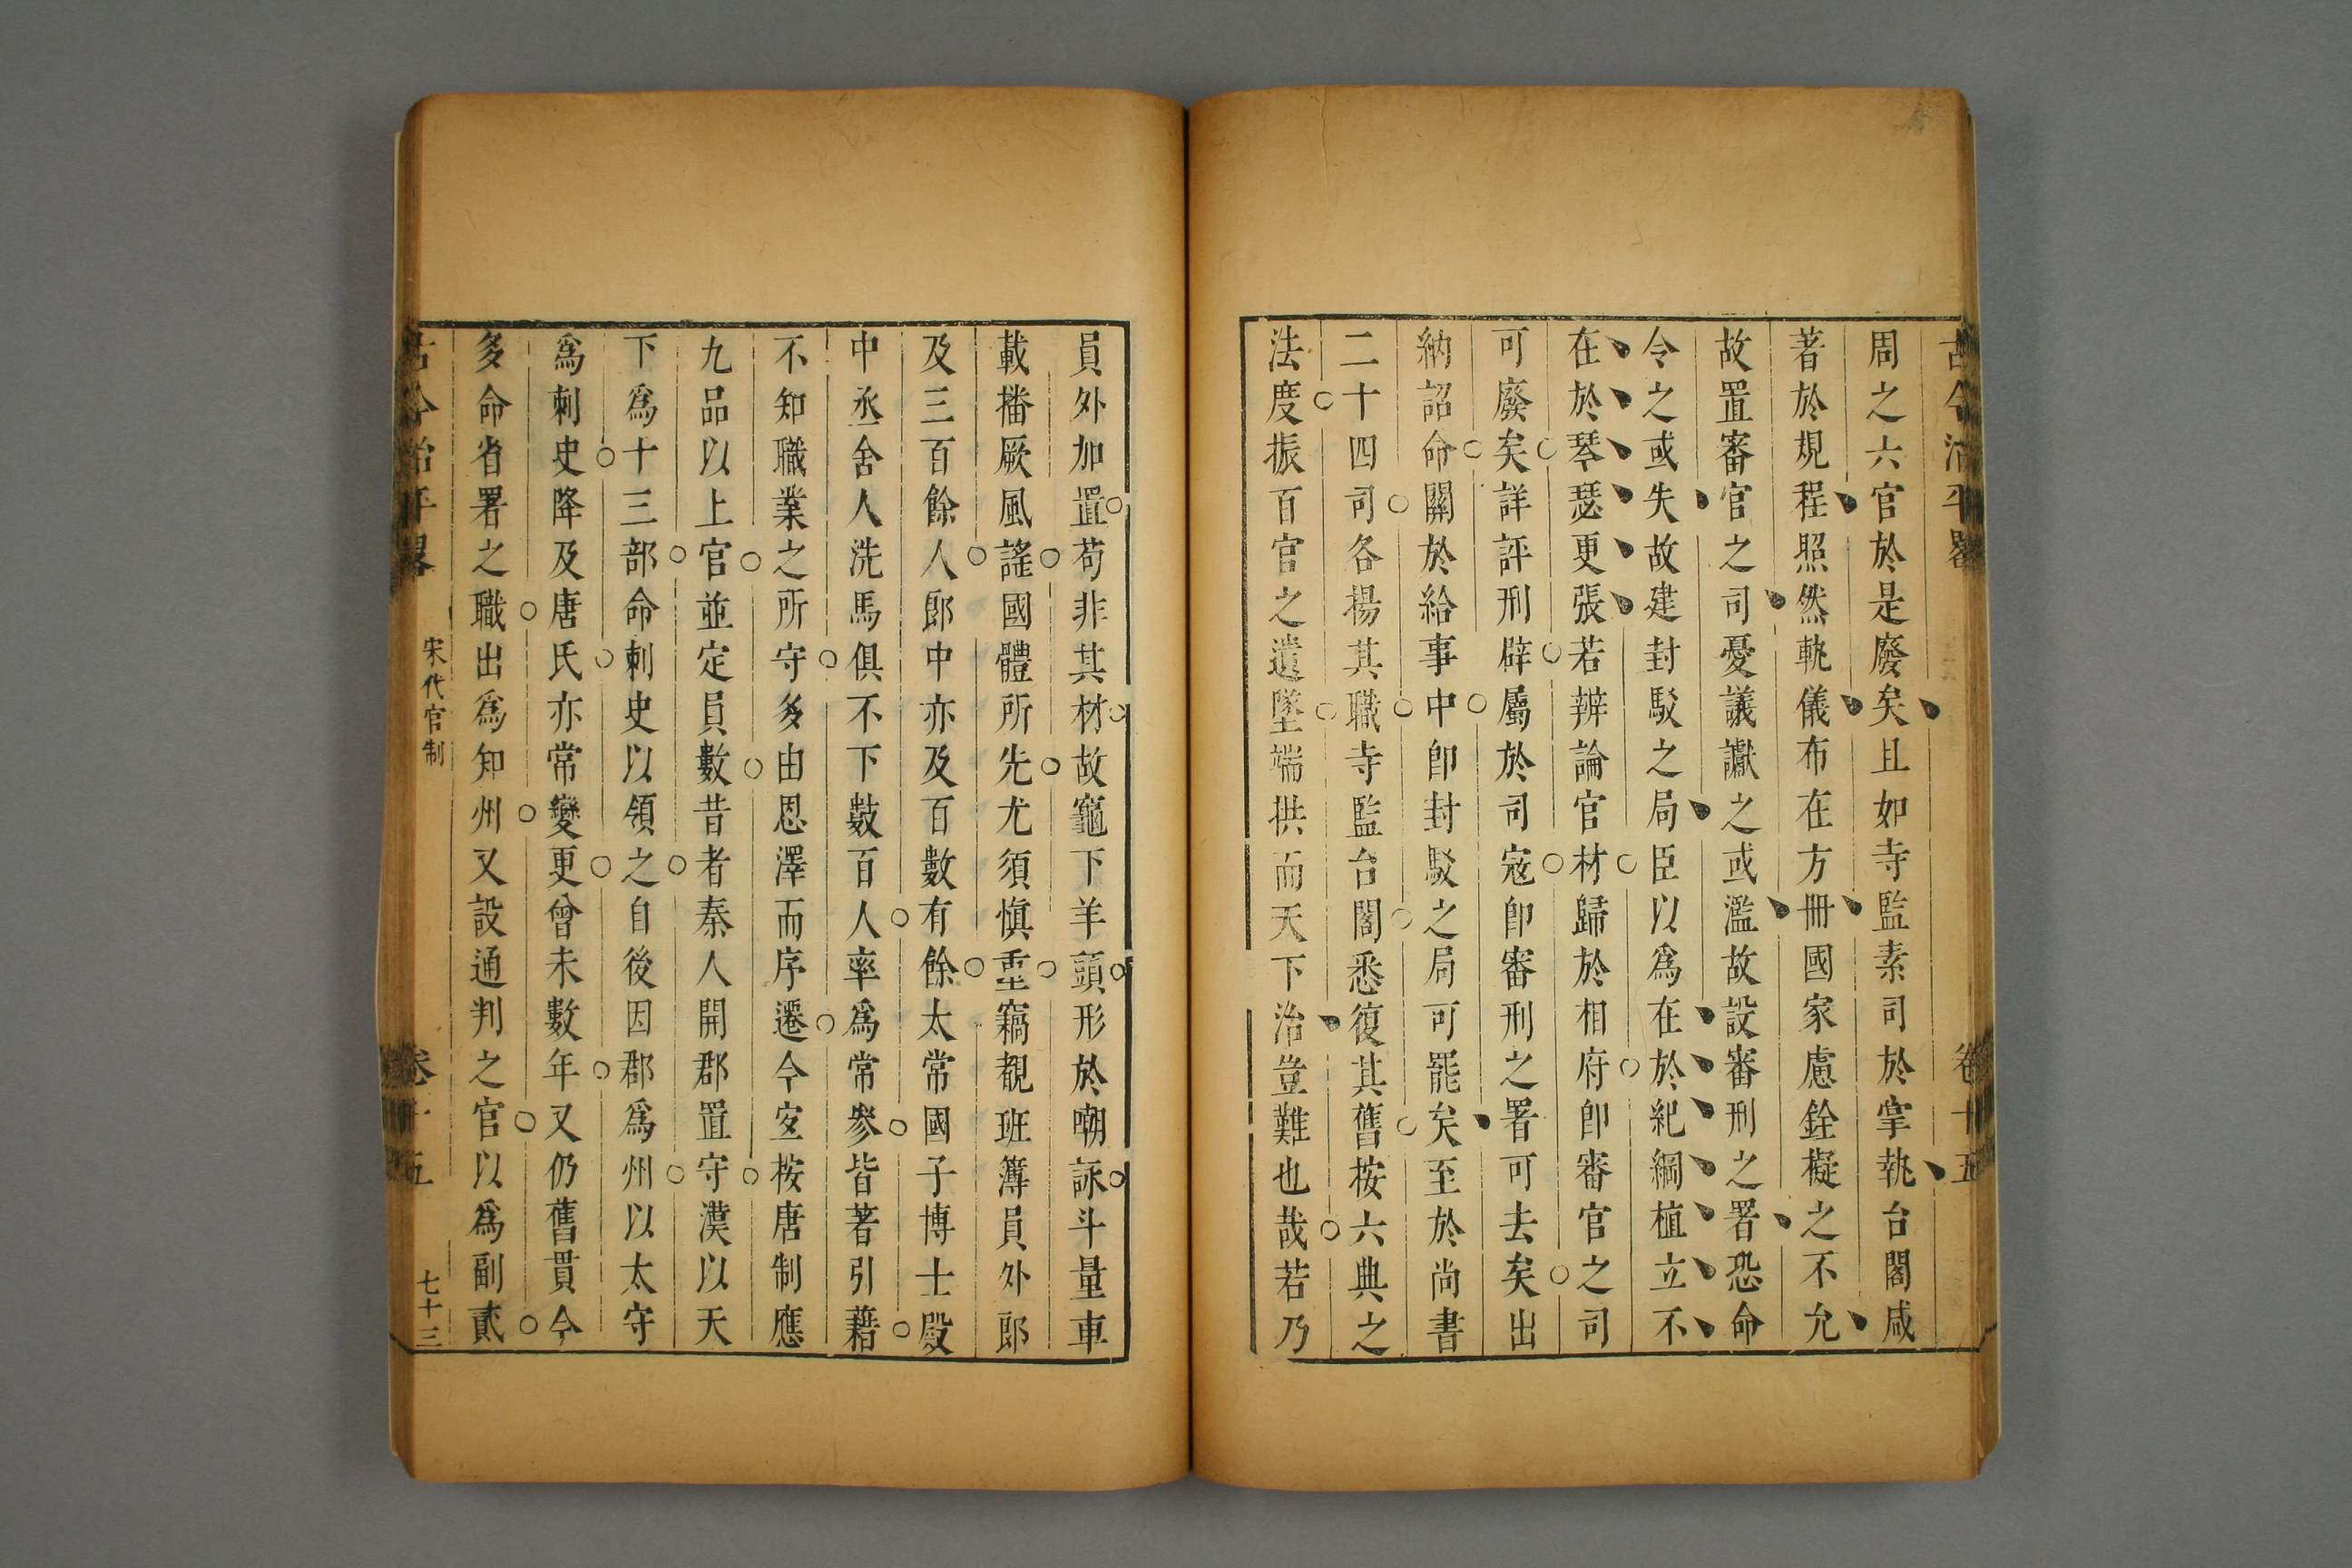 古今治平畧 卷十五
周之六官於是廢矣且如寺監素司於掌執台閣咸
著於規程照然軌儀布在方冊國家慮銓擬之不允
故置審官之司憂議讞之或濫故設審刑之署恐命
令之或失故建封駁之局臣以爲在於紀綱植立不
在於琴瑟更張若辨論官材歸於相府卽審官之司
可廢矣詳評刑辟屬於司宼卽審刑之署可去矣出
納詔命關於給事中卽封駁之局可罷矣至於尚書
二十四司各揚其職寺監台閣悉復其舊按六典之
法度振百官之遺墜端拱而天下治豈難也哉若乃
員外加置苟非其材故竈下羊頭形於嘲詠斗量車
載播厥風謠國體所先尤須慎重竊覩班簿員外郎
及三百餘人郎中亦及百數有餘太常國子博士殿
中丞舍人洗馬俱不下數百人率爲常參皆著引藉
不知職業之所守多由恩澤而序遷今宜按唐制應
九品以上官並定員數昔者秦人開郡置守漢以天
下爲十三部命刺史以領之自後因郡爲州以太守
爲刺史降及唐氏亦常變更曾未數年又仍舊貫今
多命省署之職出爲知州又設通判之官以爲副貳
古今治平畧 宋代官制 卷十五 七十三